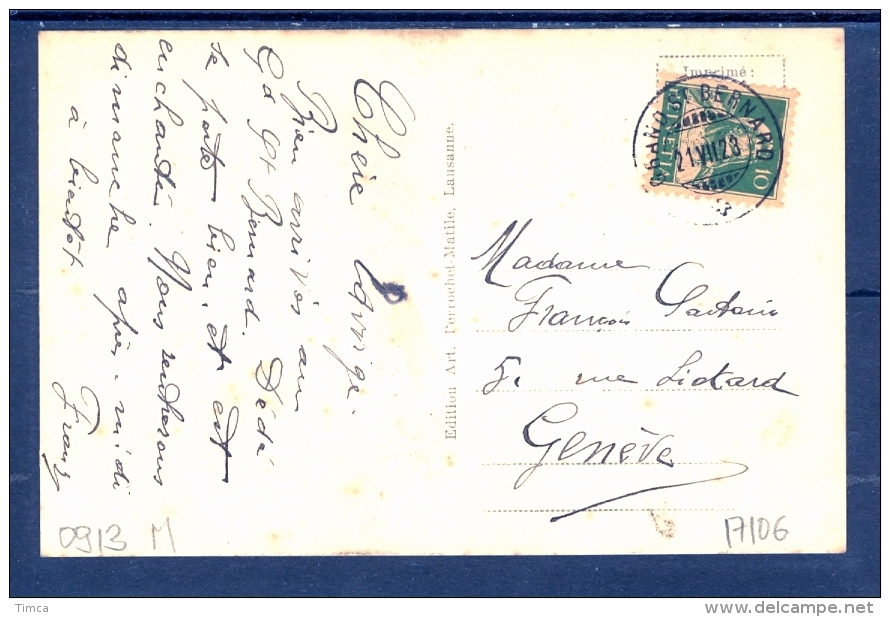 Chère
Bien arrivés au
Gd St Bernard. Dédé
se porte bien, et est
enchanté. Nous rentrerons
dimanche après-midi
à bientôt
Franz
Edition Art. Perrochet-Matile, Lausanne.
Imprimé:
GRAND ST BERNARD
21.VII.23
HELVETIA
10
Madame
François
5, rue Liotard
Genève
0913 M
17/06
Timca
delcampe.net